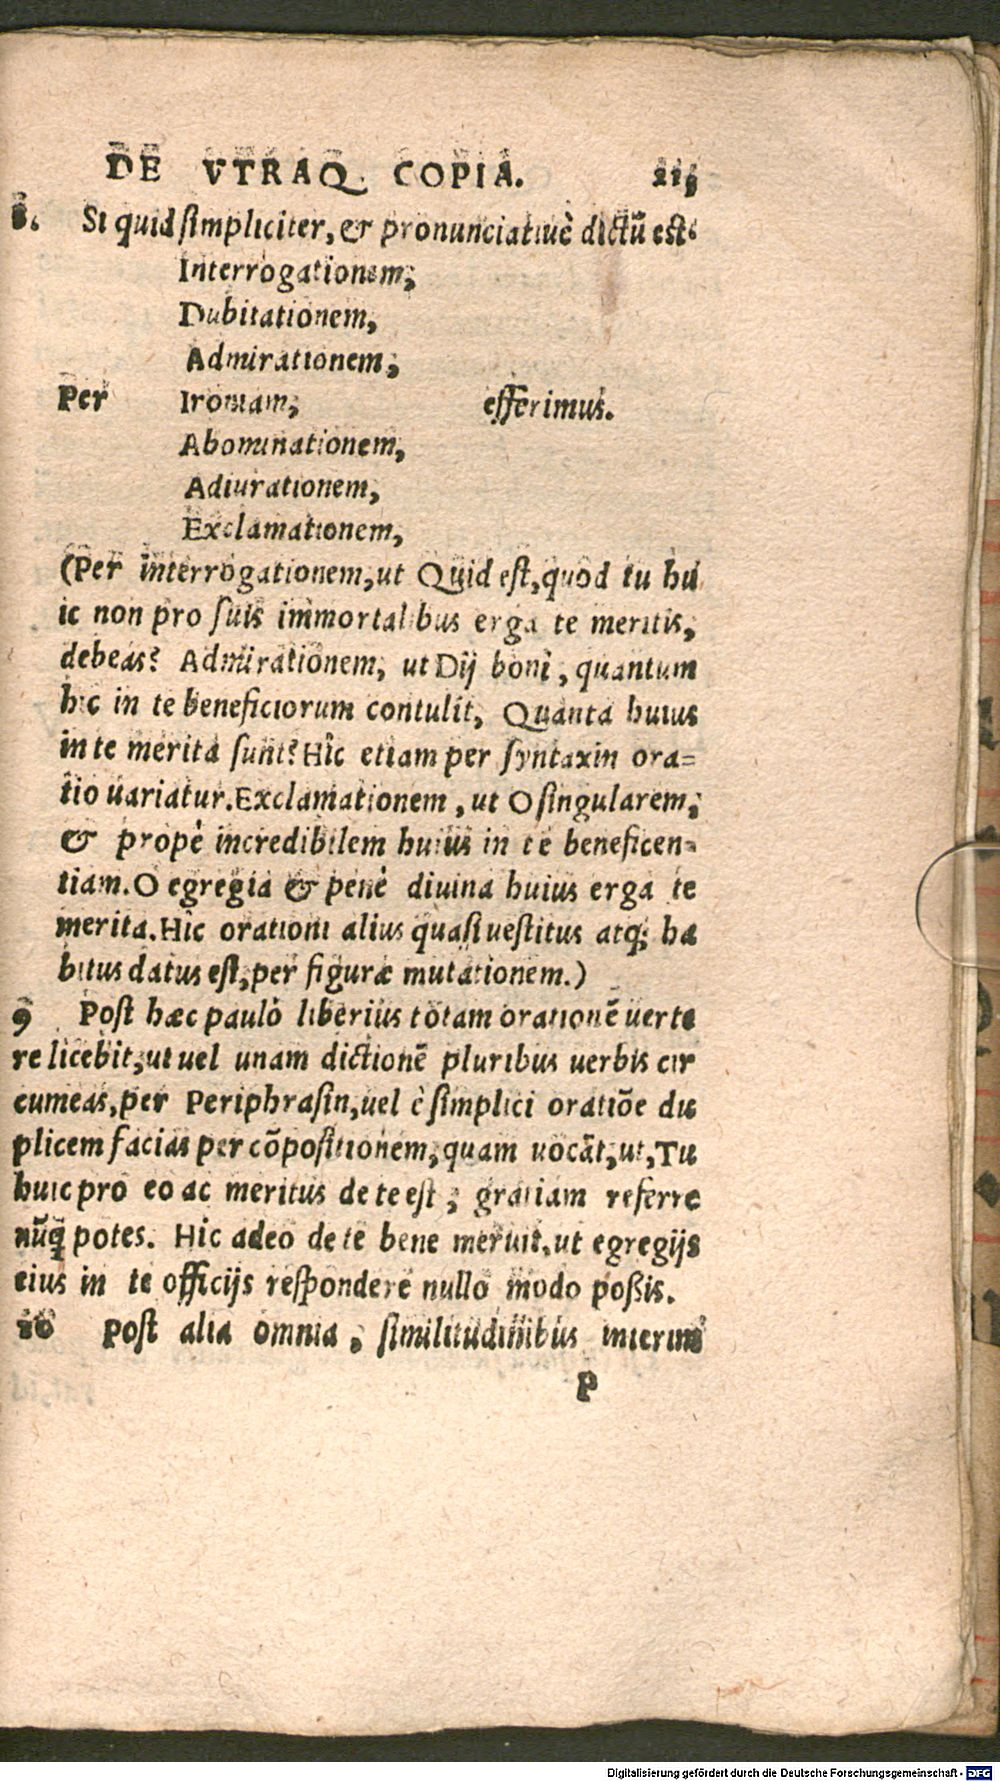 DE VTRAQ COPIA. 113
8. Si quid simpliciter, & pronunciatiuè dictũ est
Interrogationem,
Dubitationem,
Admirationem,
Per Ironiam, efferimus.
Abominationem,
Adiurationem,
Exclamationem,
(Per interrogationem, ut Quid est, quod tu hu
ic non pro suis immortalibus erga te meritis,
debeas? Admirationem, ut Dij boni, quantum
hic in te beneficiorum contulit, Quanta huius
in te merita sunt? Hîc etiam per syntaxin ora=
tio uariatur. Exclamationem, ut O singularem,
& propè incredibilem huius in te beneficen=
tiam. O egregia & penè diuina huius erga te
merita. Hîc orationi alius quasi uestitus atq; ha
bitus datus est, per figuræ mutationem.)
9 Post hæc paulò liberius totam orationẽ uerte
re licebit, ut uel unam dictionẽ pluribus uerbis cir
cumeas, per Periphrasin, uel è simplici oratiõe du
plicem facias per cõpositionem, quam uocãt, ut, Tu
huic pro eo ac meritus de te est, gratiam referre
nũq̃ potes. Hic adeo de te bene meruit, ut egregijs
eius in te officijs respondere nullo modo poßis.
10 Post alia omnia, similitudinibus interim
P
Digitalisierung gefördert durch die Deutsche Forschungsgemeinschaft - DFG